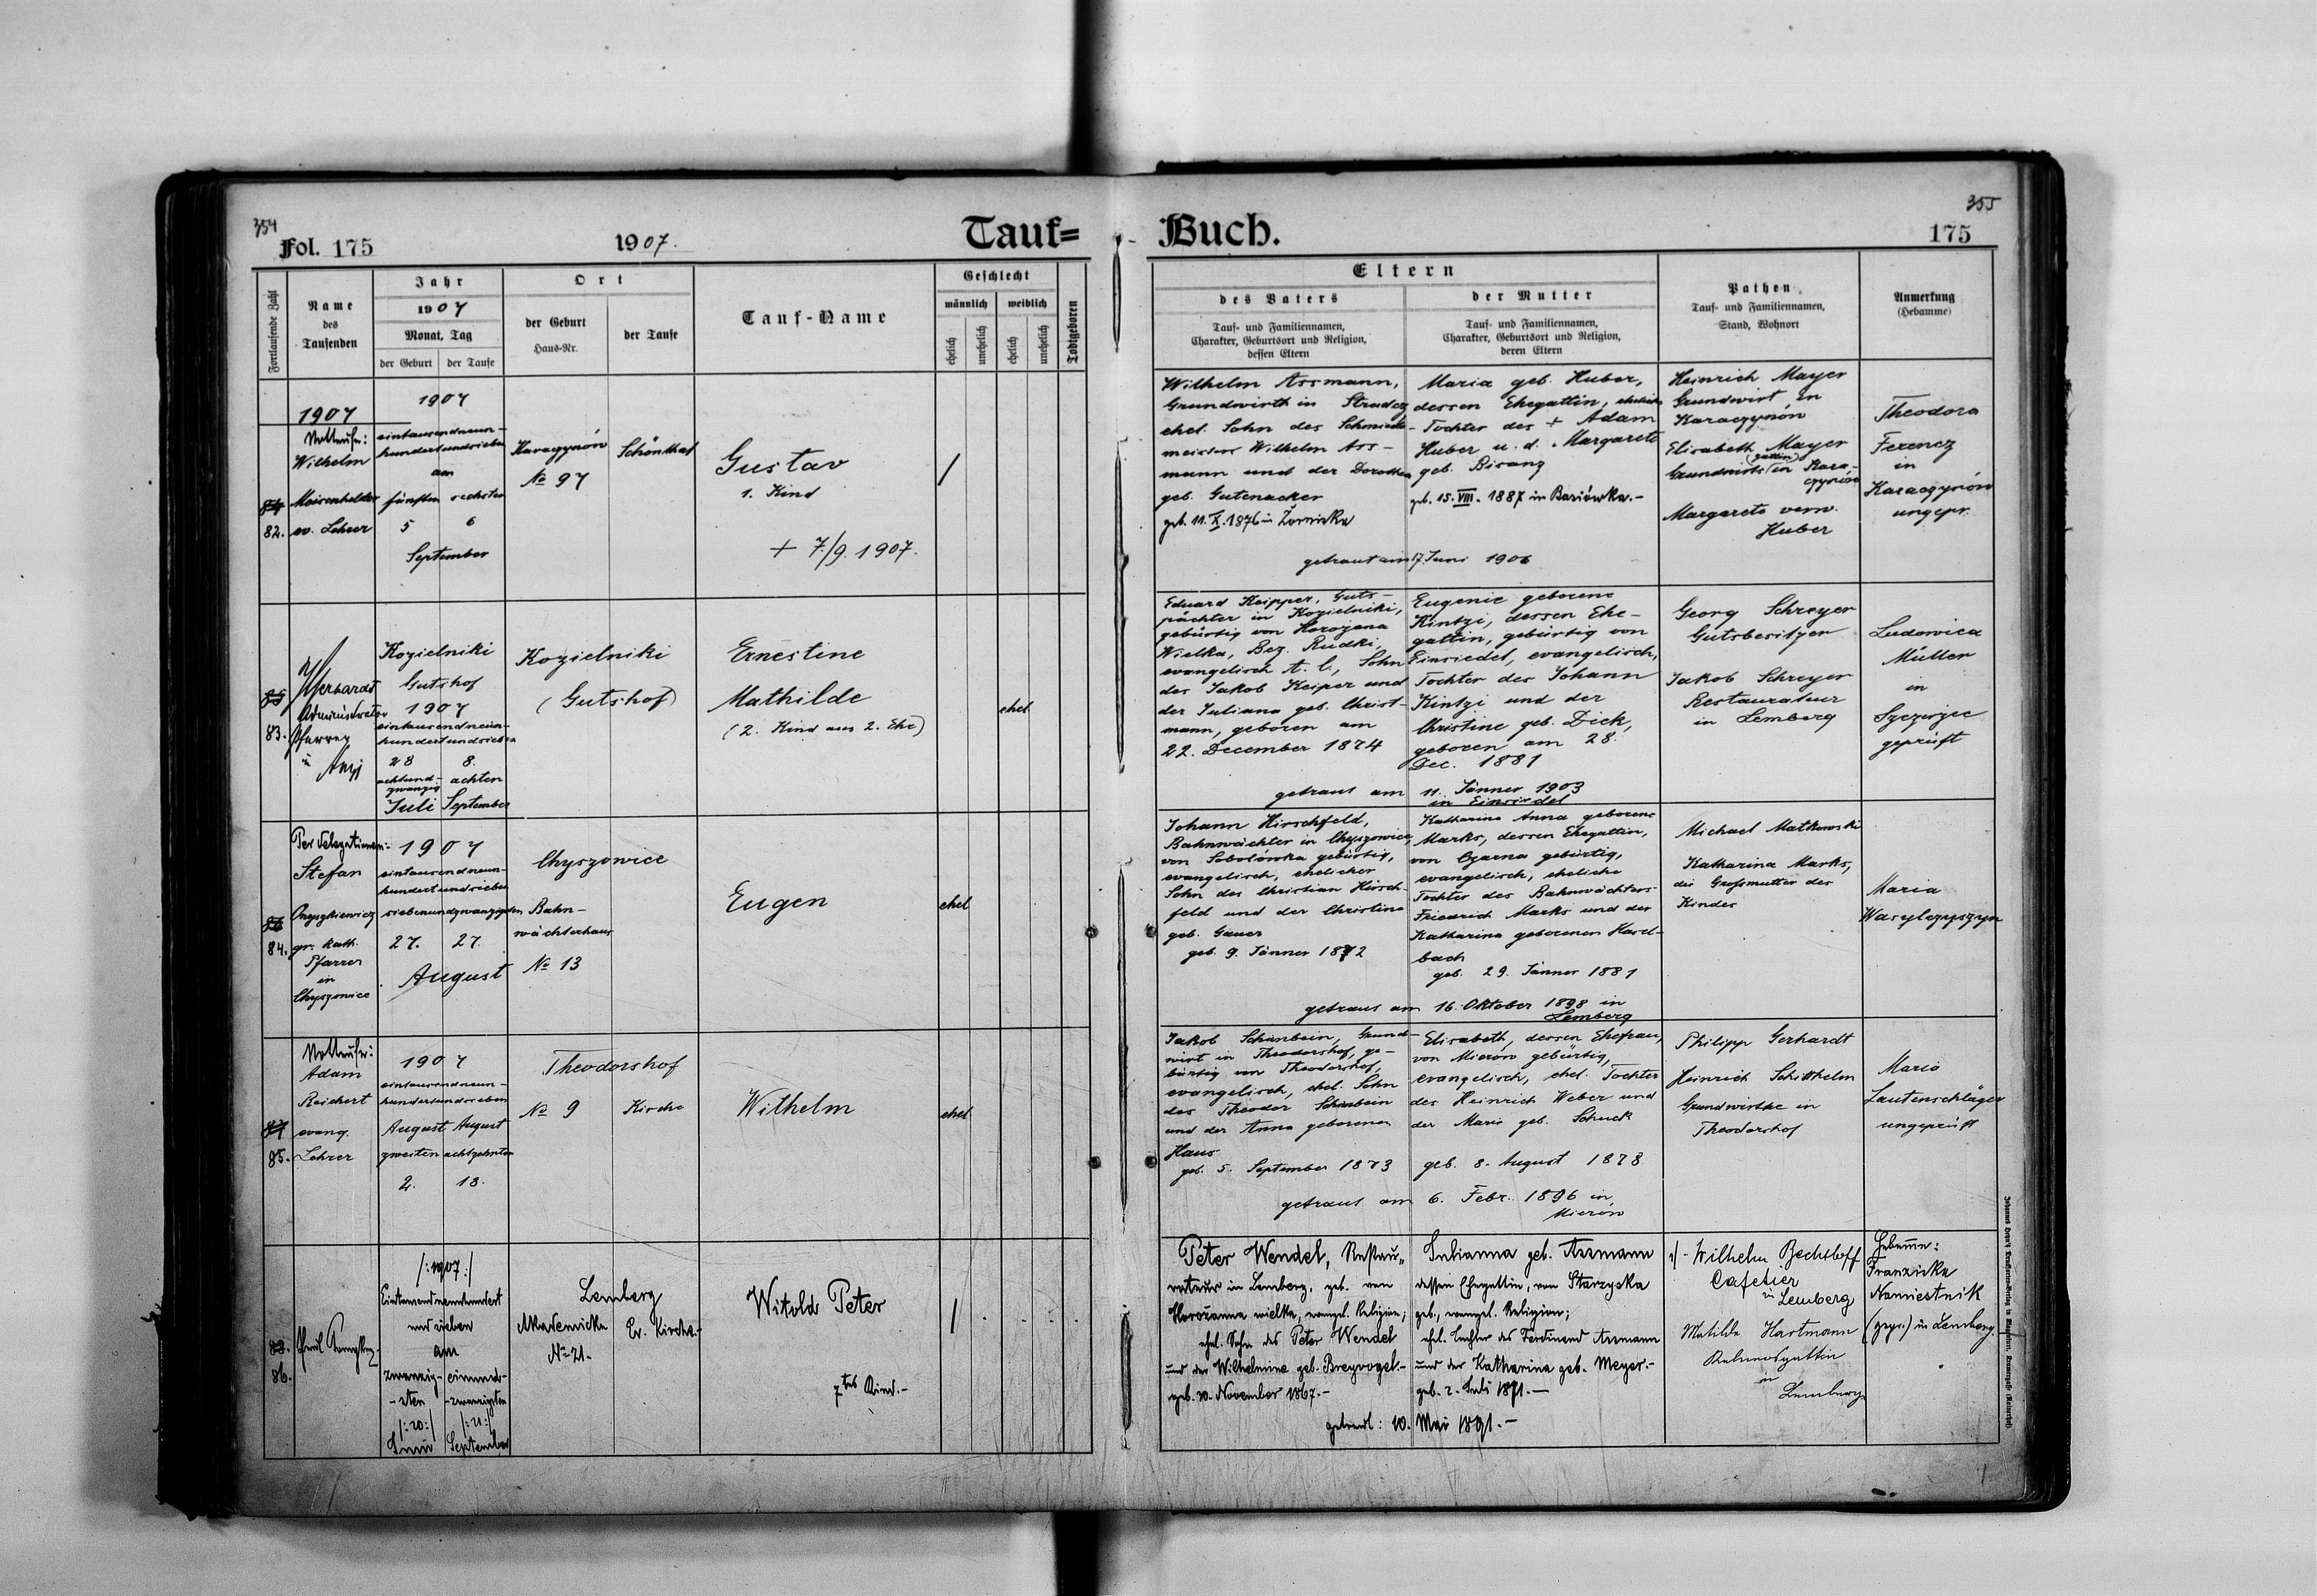 354
Fol. 175
1907.
Tauf=
Buch.
355
175
Fortlaufende Zahl
Name
des
Taufenden
Jahr
1907
Monat, Tag
der Geburt
der Taufe
Ort
der Geburt
Haus-Nr.
der Taufe
Tauf-Name
Geschlecht
männlich
weiblich
ehelich
unehelich
ehelich
unehelich
Todtgeboren
Eltern
des Vaters
Tauf- und Familiennamen,
Charakter, Geburtsort und Religion,
dessen Eltern
der Mutter
Tauf- und Familiennamen,
Charakter, Geburtsort und Religion,
deren Eltern
Pathen
Tauf- und Familiennamen,
Stand, Wohnort
Anmerkung
(Hebamme)
84
82.
1907
Nottaufe:
Wilhelm
Meisenhelder
ev. Lehrer
1907
eintausendneun-
hundertundsieben
am
fünften
sechsten
5
6
September
Karaczynów
№ 97
Schönthal
Gustav
1. Kind
+ 7./9. 1907.
Wilhelm Assmann,
Grundwirth in Stradcz
ehel. Sohn des Schmiede-
meisters Wilhelm Ass-
mann und der Dorothea
geb. Gutenacker
geb. 11. X. 1876 in Żorniska
Maria geb. Huber,
dessen Ehegattin, eheliche
Tochter des + Adam
Huber u. d. Margarete
geb. Bisanz
geb. 15. VIII. 1887 in Bariówka.-
getraut am 17. Juni 1906
Heinrich Mayer
Grundwirt in
Karaczynów
Elisabeth Mayer
Grundwirts(gattin) in Kara-
czynów
Margarete verw.
Huber
Theodora
Ferencz
in
Karaczynów
ungepr.
85
83.
Gerhardt
Administrator
Pfarrer
Kozielniki
Gutshof
1907
eintausendneun-
hundertundsieben
28
8.
achtund-
zwanzig
achten
Juli
September
Kozielniki
(Gutshof)
Ernestine
Mathilde
(2. Kind aus 2. Ehe)
ehel
Eduard Keipper, Guts-
pächter in Kozielniki,
gebürtig von Horożana
Wielka, Bez. Rudki,
evangelisch A. C., Sohn
des Jakob Keiper und
der Juliana geb. Christ-
mann, geboren am
22. December 1874
Eugenie geborene
Kintzi, dessen Ehe-
gattin, gebürtig von
Einsiedel, evangelisch,
Tochter des Johann
Kintzi und der
Christine geb. Dick,
geboren am 28.
Dec. 1881
getraut am 11. Jänner 1903
in Einsiedel
Georg Schreyer
Gutsbesitzer
Jakob Schreyer
Restaurateur
in Lemberg
Ludowica
Müller
in
Szczerzec
geprüft
86
84.
Per delegationem:
Stefan
Onyszkiewicz
gr. kath.
Pfarrer
in
Chyszowice
1907
eintausendneun-
hundertundsieben
siebenundzwanzigsten
27.
27.
August
Chyszowice
Bahn-
wächterhaus
№ 13
Eugen
ehel
Johann Hirschfeld,
Bahnwächter in Chyszowice,
von Sobolówka gebürtig,
evangelisch, ehelicher
Sohn des Christian Hirsch-
feld und der Christina
geb. Gauer
geb. 9. Jänner 1872
Katharina Anna geborene
Marks, dessen Ehegattin,
von Czarna gebürtig,
evangelisch, eheliche
Tochter des Bahnwächters
Friedrich Marks und der
Katharina geborenen Hasel-
bach
geb. 29. Jänner 1881
getraut am 16. Oktober 1898 in
Lemberg
Michael Matkowski
Katharina Marks,
die Großmutter des
Kindes
Maria
Wasylczyszyn
87
85.
Nottaufe:
Adam
Reichert
evang.
Lehrer
1907
eintausendneun-
hundertundsieben
August
August
zweiten
achtzehnten
2.
18.
Theodorshof
№ 9
Kirche
Wilhelm
ehel
Jakob Scheinbein, Grund-
wirt in Theodorshof, ge-
bürtig von Theodorshof,
evangelisch, ehel. Sohn
des Theodor Scheinbein
und der Anna geborenen
Haus
geb. 5. September 1873
Elisabeth, dessen Ehefrau,
von Mierów gebürtig,
evangelisch, ehel. Tochter
des Heinrich Weber und
der Maria geb. Schuck
geb. 8. August 1878
getraut am 6. Febr. 1896 in
Mierów
Philipp Gerhardt
Heinrich Schitthelm
Grundwirthe in
Theodorshof
Maria
Lautenschläger
ungeprüft
88.
86.
/:1907:/
Eintausendneunhundert
und sieben
am
zwanzig-
-sten
einund-
-zwanzigsten
/:20:/
/:21:/
Juni
September
Lemberg
Akademicka
№ 21.-
Ev. Kirche.-
Witold Peter
7tes Kind.-
Peter Wendel, Restau-
rateur in Lemberg, geb. von
Horożanna wielka, evangel. Religion;
ehel. Sohn des Peter Wendel
und der Wilhelmine geb. Breyvogel.-
geb. 30. November 1867.-
Julianna geb. Assmann
dessen Ehegattin, von Starzyska
geb., evangel. Religion;
ehel. Tochter des Ferdinand Assmann
und der Katharina geb. Meyer.-
geb. 2. Juli 1871.-
getraut: 10. Mai 1891.-
Wilhelm Bechtloff
Cafetier
in Lemberg
Matilda Hartmann
in
Lemberg
Hebamme:
Franziska
Namiestnik
(gepr.) in Lemberg.